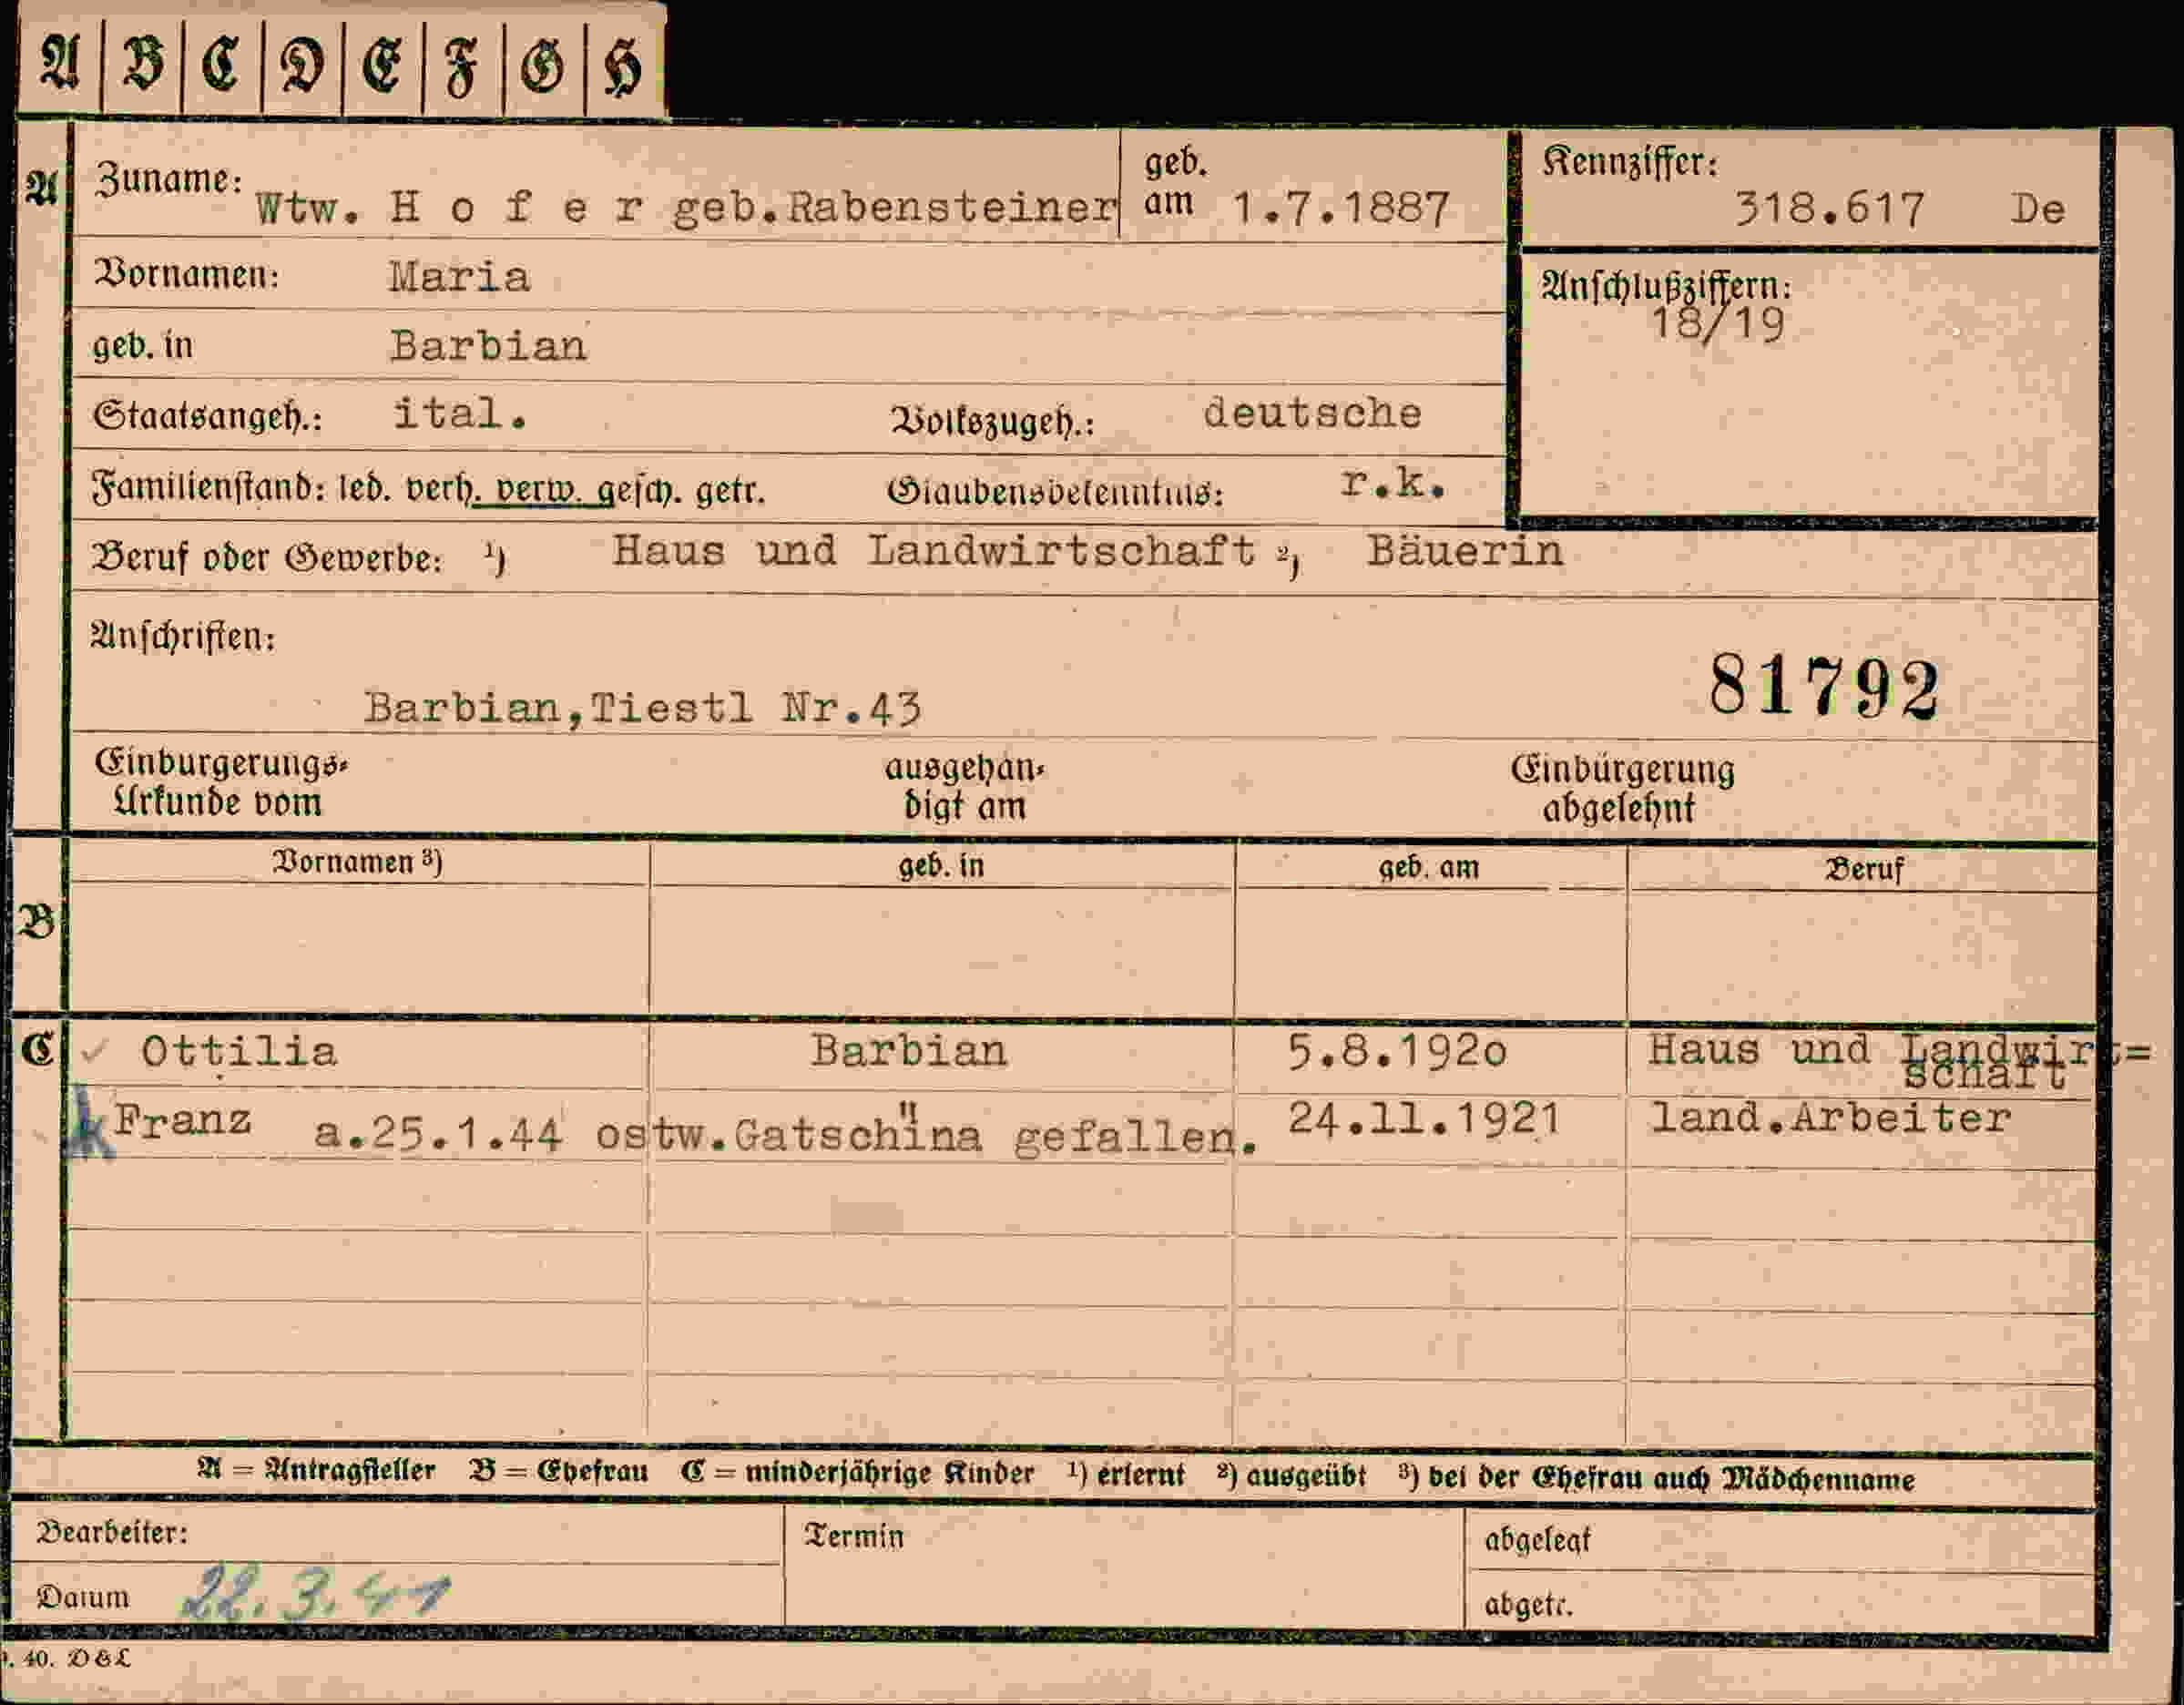 A B C D E F G H
A Zuname: Wtw. H o f e r geb.Rabensteiner geb. am 1.7.1887
Kennziffer: 318.617 De
Vornamen: Maria
Anschlußziffern: 18/19
geb. in Barbian
Staatsangeh.: ital. Volkszugeh.: deutsche
Familienstand: led. verh. verw. gesch. getr. Glaubensbekenntnis: r.k.
Beruf oder Gewerbe: 1) Haus und Landwirtschaft 2) Bäuerin
Anschriften:
81792
Barbian,Tiestl Nr.43
Einbürgerungs- ausgehän- Einbürgerung
Urkunde vom digt am abgelehnt
Vornamen 3) geb. in geb. am Beruf
B
C Ottilia Barbian 5.8.192o Haus und Landwirt=
schaft
k Franz a.25.1.44 ostw.Gatschina gefallen. " 24.11.1921 land.Arbeiter
A = Antragsteller B = Ehefrau C = minderjährige Kinder 1) erlernt 2) ausgeübt 3) bei der Ehefrau auch Mädchenname
Bearbeiter: Termin abgelegt
Datum 22.3.41 abgetr.
. 40. D&L